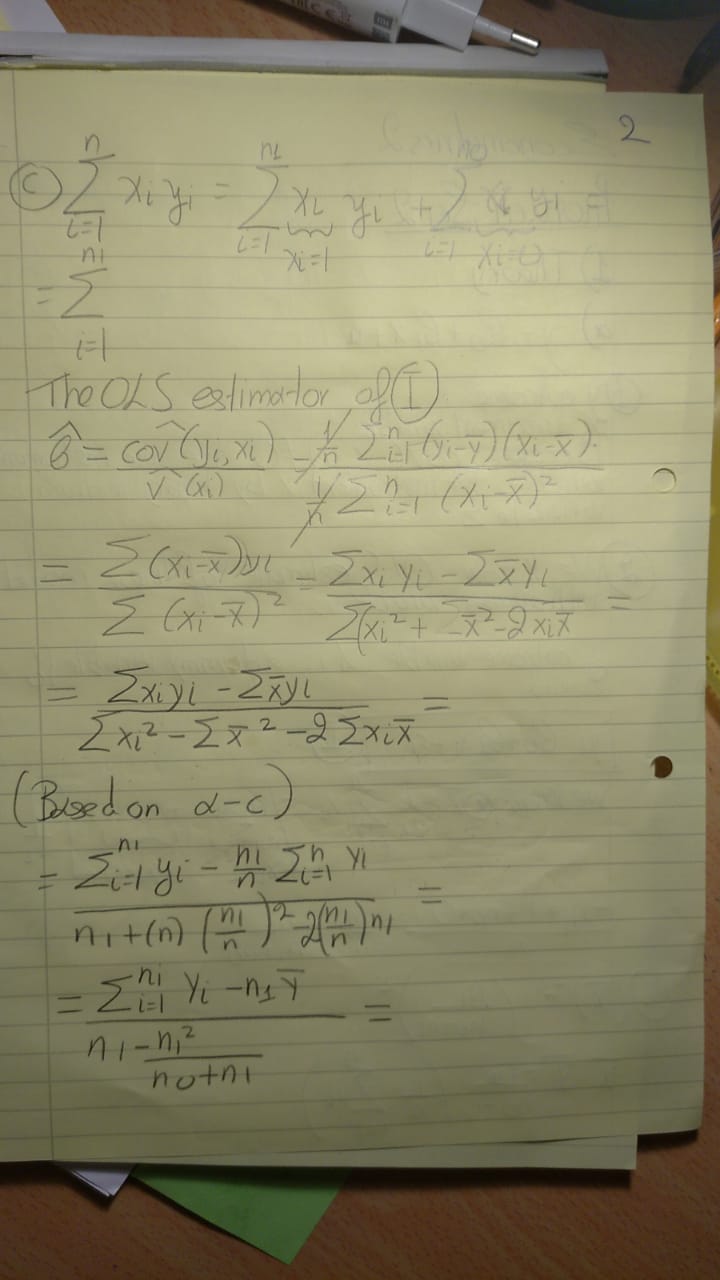 2
(c) ∑_{i=1}^{n} xi yi = ∑_{i=1}^{n1} xi (xi=1) yi + ∑_{i=1}^{n0} xi (xi=0) yi =
= ∑_{i=1}^{n1}
The OLS estimator of (I)
β̂ = cov̂(yi, xi) / V̂(xi) = 1/n ∑_{i=1}^{n} (yi-ȳ)(xi-x̄). / 1/n ∑_{i=1}^{n} (xi-x̄)²
= ∑(xi-x̄)yi / ∑(xi-x̄)² = ∑xi yi - ∑x̄yi / ∑(xi² + ∑x̄² - 2xix̄ =
= ∑xiyi - ∑x̄yi / ∑xi² - ∑x̄² - 2∑xix̄ =
(Based on α-c)
= ∑_{i=1}^{n1} yi - n1/n ∑_{i=1}^{n} yi / n1 + (n)(n1/n)² - 2(n1/n)n1 =
= ∑_{i=1}^{n1} yi - n1ȳ / n1 - n1²/(n0+n1) =